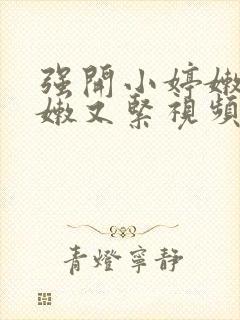 强開小婷嫩
嫩又緊視頻
青燈寧静